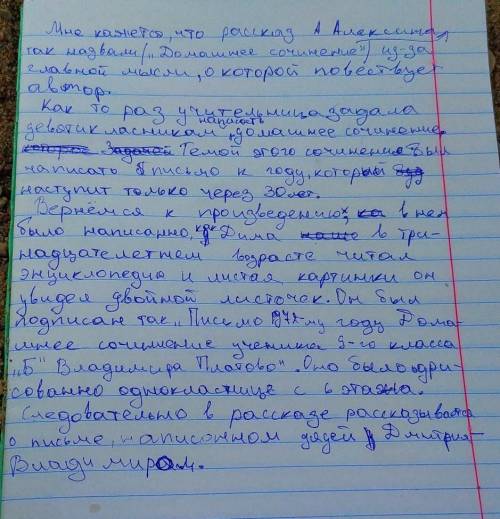 Мне кажется, что рассказ А Алексина,
так назвали („Домашнее сочинение") из-за
главной мысли, о которой повествует
автор.
Как то раз учительница задала
написать
девятикласникам домашнее сочинение,
которое Задачей Темой этого сочинения был
написать письмо к году, который буд
наступит только через 30 лет.
Вернёмся к произведению, ка в нем
было написанно, как Дима наше в три-
надцателетнем возрасте читал
энциклопедию и листая картинки он
увидел двойной листочек. Он был
подписан так „Письмо 972-му году Дома-
шнее сочинение ученика 9-го класса
„Б" Владимира Платово". Оно было адри-
сованно однокластнице с 6 этажа.
Следовательно в рассказе рассказывается
о письме, написанном дядей Дмитрия-
Владимиром.